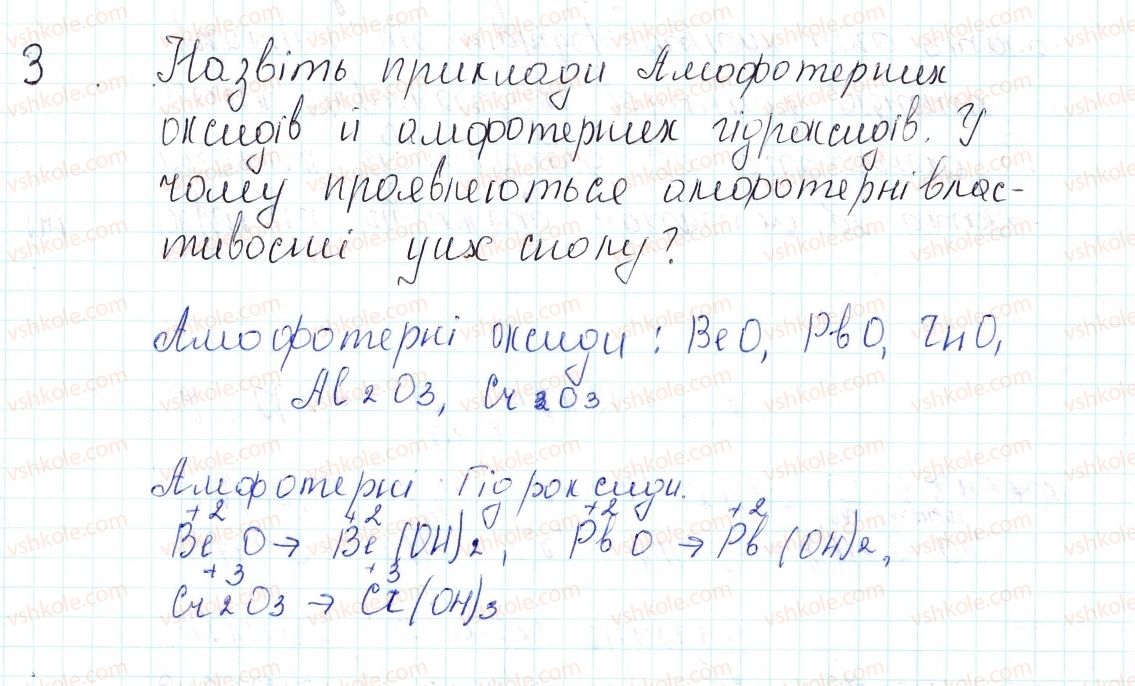 3 Назвіть приклади Амофотерних
оксидів й амфотерних гідроксидів. У
чому проявляються амфотерні влас-
тивості цих сполу?
Амофотерні оксиди: BeO, PbO, ZnO,
Al2O3, Cr2O3
Амфотерні Гідроксиди.
+2 +2 +2 +2
BeO → Be(OH)2, PbO → Pb(OH)2,
+3 +3
Cr2O3 → Cr(OH)3